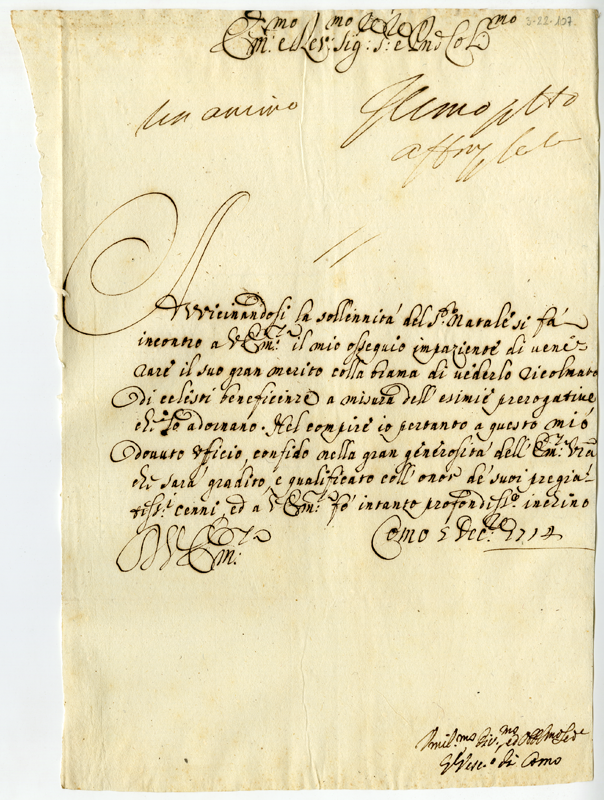 Em.mo e Rev.mo Sig.r S.r e Pne Col.mo
3-22-197.
Avvicinandosi la sollennità del S.to Natale si fà
incontro a V. Em.za il mio ossequio impaziente di vene-
rare il suo gran merito colla brama di vederlo ricolmato
di celesti beneficenze a misura dell'esimie prerogative
che lo adornano. Nel compire io pertanto a questo mio
dovuto Ufficio, confido nella gran generosità dell'Em.za Vrã
che sarà gradito, e qualificato coll'onor de' suoi pregia-
tiss.i cenni, ed a V. Em.za fò intanto profondiss.o inchino
D V Em.za
Como 5 Dec.bre 1714
Umil.mo Div.mo ed Obb.mo Se.re
Il Vesc.o di Como